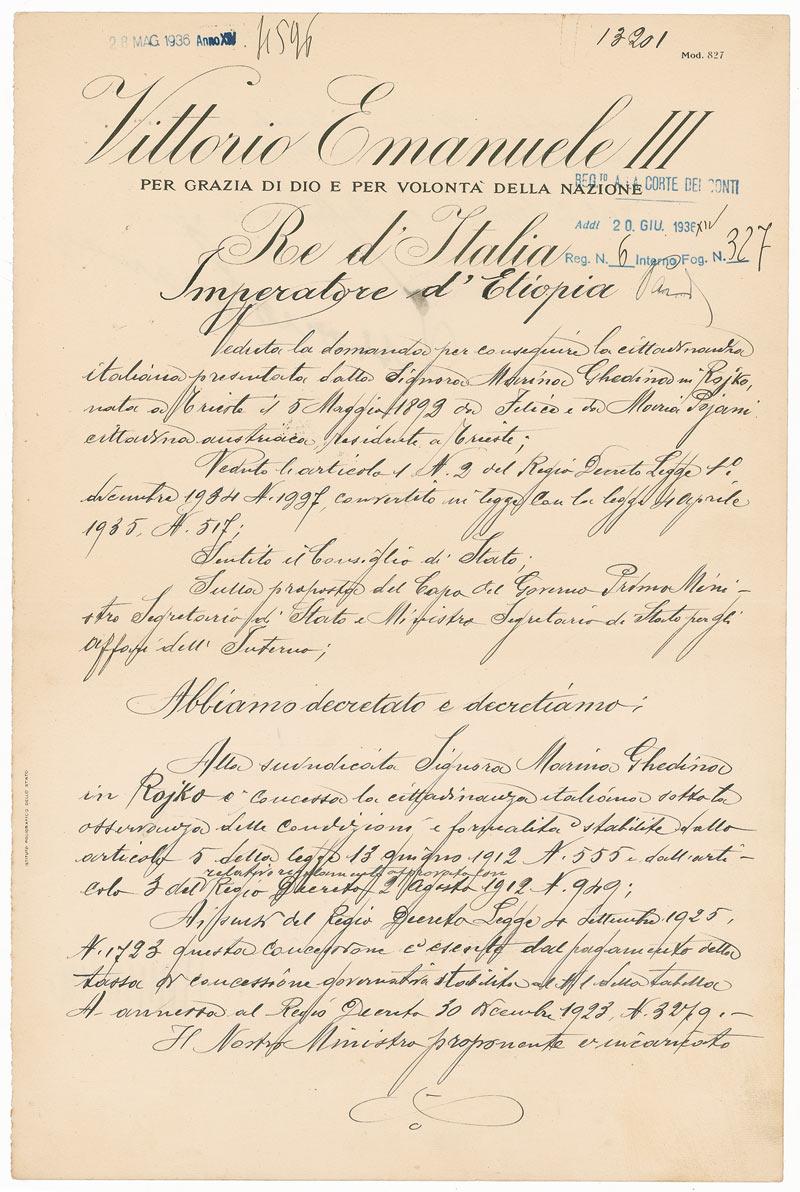 28 MAG 1936 Anno XIV 4596
13201
Mod. 827
Vittorio Emanuele III
PER GRAZIA DI DIO E PER VOLONTÀ DELLA NAZIONE
Re d'Italia
Imperatore d'Etiopia
REG.TO ALLA CORTE DEI CONTI
Addì 20 GIU. 1936 XIV
Reg. N. 6 Interno Fog. N. 327
Veduta la domanda per conseguire la cittadinanza
italiana presentata dalla Signora Marina Ghedina in Rojko,
nata a Trieste il 5 Maggio 1892 da Felice e da Maria Pojani
cittadina austriaca, residente a Trieste;
Veduto l'articolo 1 N. 2 del Regio Decreto Legge 1°
dicembre 1934 N. 1997, convertito in legge con la legge 4 aprile
1935, N. 517;
Sentito il Consiglio di Stato;
Sulla proposta del Capo del Governo Primo Mini-
stro Segretario di Stato e Ministro Segretario di Stato per gli
affari dell'Interno;
Abbiamo decretato e decretiamo:
Alla suindicata Signora Marina Ghedina
in Rojko è concessa la cittadinanza italiana sotto la
osservanza delle condizioni e formalità stabilite dallo
articolo 5 della legge 13 giugno 1912 N. 555 e dall'arti-
relativo regolamento approvato con
colo 3 del Regio Decreto 2 Agosto 1912 N. 949;
Ai sensi del Regio Decreto Legge 4 settembre 1925,
N. 1723 questa concessione è esente dal pagamento della
tassa di concessione governativa stabilita al N. 1 della tabella
A annessa al Regio Decreto 30 dicembre 1923, N. 3279.-
Il Nostro Ministro proponente è incaricato
ISTITUTO POLIGRAFICO DELLO STATO